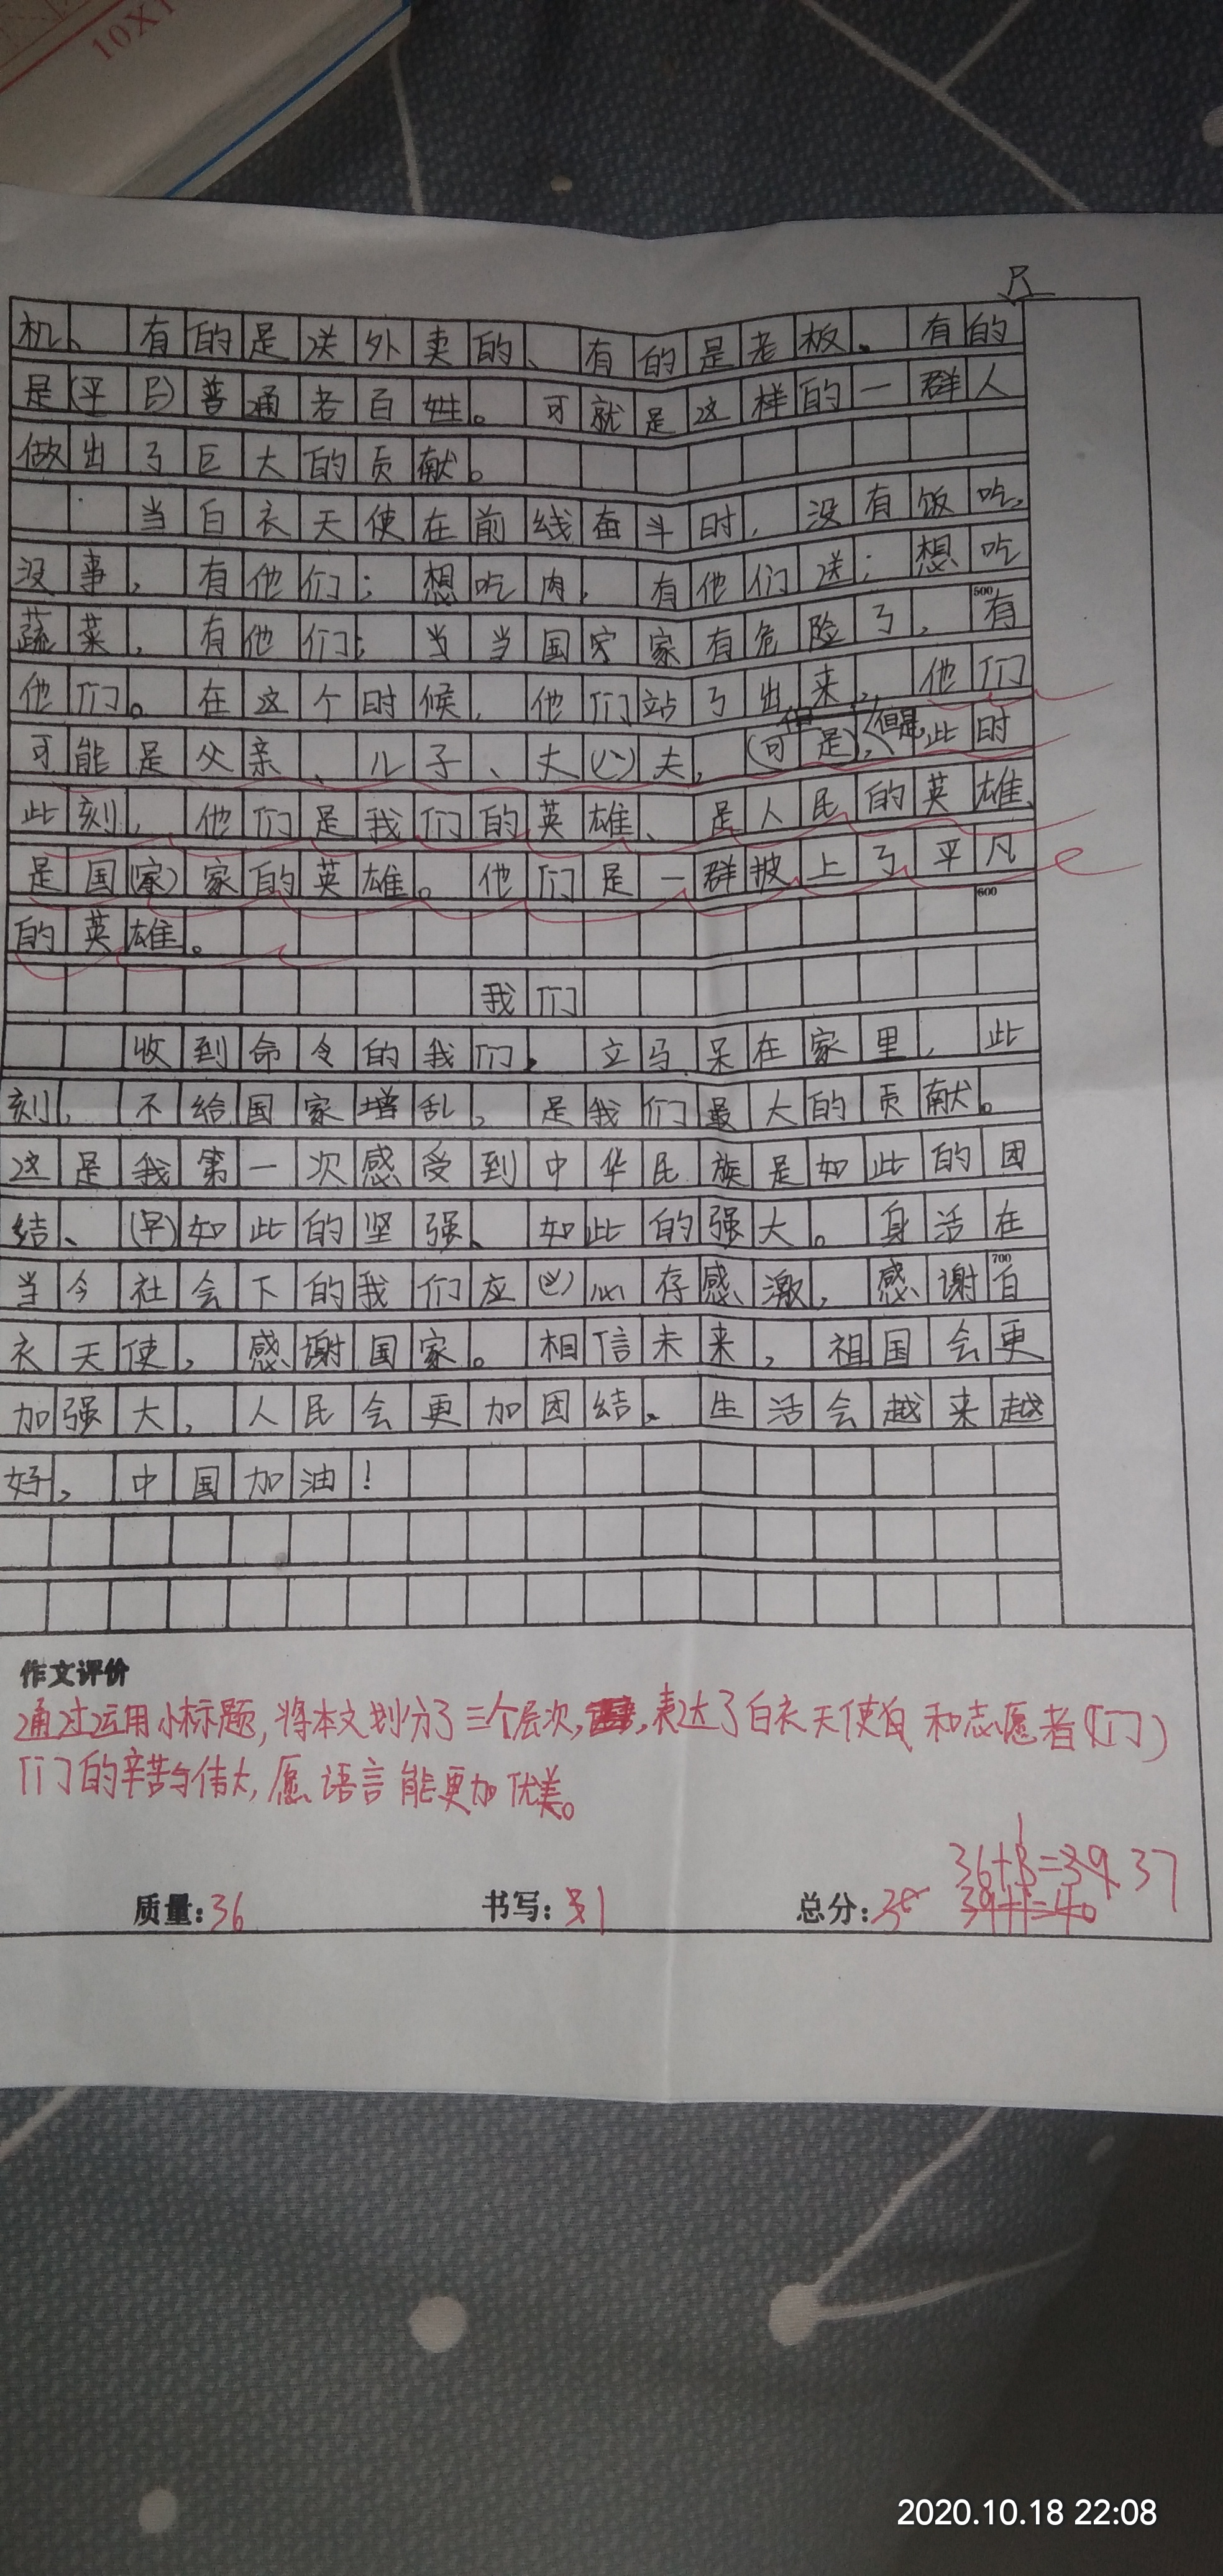 10X1
机、有的是送外卖的、有的是老板。有的
是(平民)普通老百姓。可就是这样的一群人
做出了巨大的贡献。
当白衣天使在前线奋斗时,没有饭吃,
没事,有他们;想吃肉,有他们送;想吃
500
蔬菜,有他们;当当国家家有危险了,有
他们。在这个时候,他们站了出来,他们
可能是父亲、儿子、丈()夫,(可是),但是此时
此刻,他们是我们的英雄、是人民的英雄、
是国(家)家的英雄。他们是一群披上了平凡
600
的英雄。
我们
收到命令的我们,立马呆在家里,此
刻,不给国家增乱,是我们最大的贡献。
这是我第一次感受到中华民族是如此的团
结、(早)如此的坚强、如此的强大。身活在
700
当今社会下的我们应()心存感激,感谢白
衣天使,感谢国家。相信未来,祖国会更
加强大,人民会更加团结、生活会越来越
好,中国加油!
作文评价
通过运用小标题,将本文划分了三个层次,表达了白衣天使和志愿者(们)
们的辛苦与伟大,愿语言能更加优美。
36+1=39 37
质量:36 书写:1 总分:38 39+1=40
2020.10.18 22:08